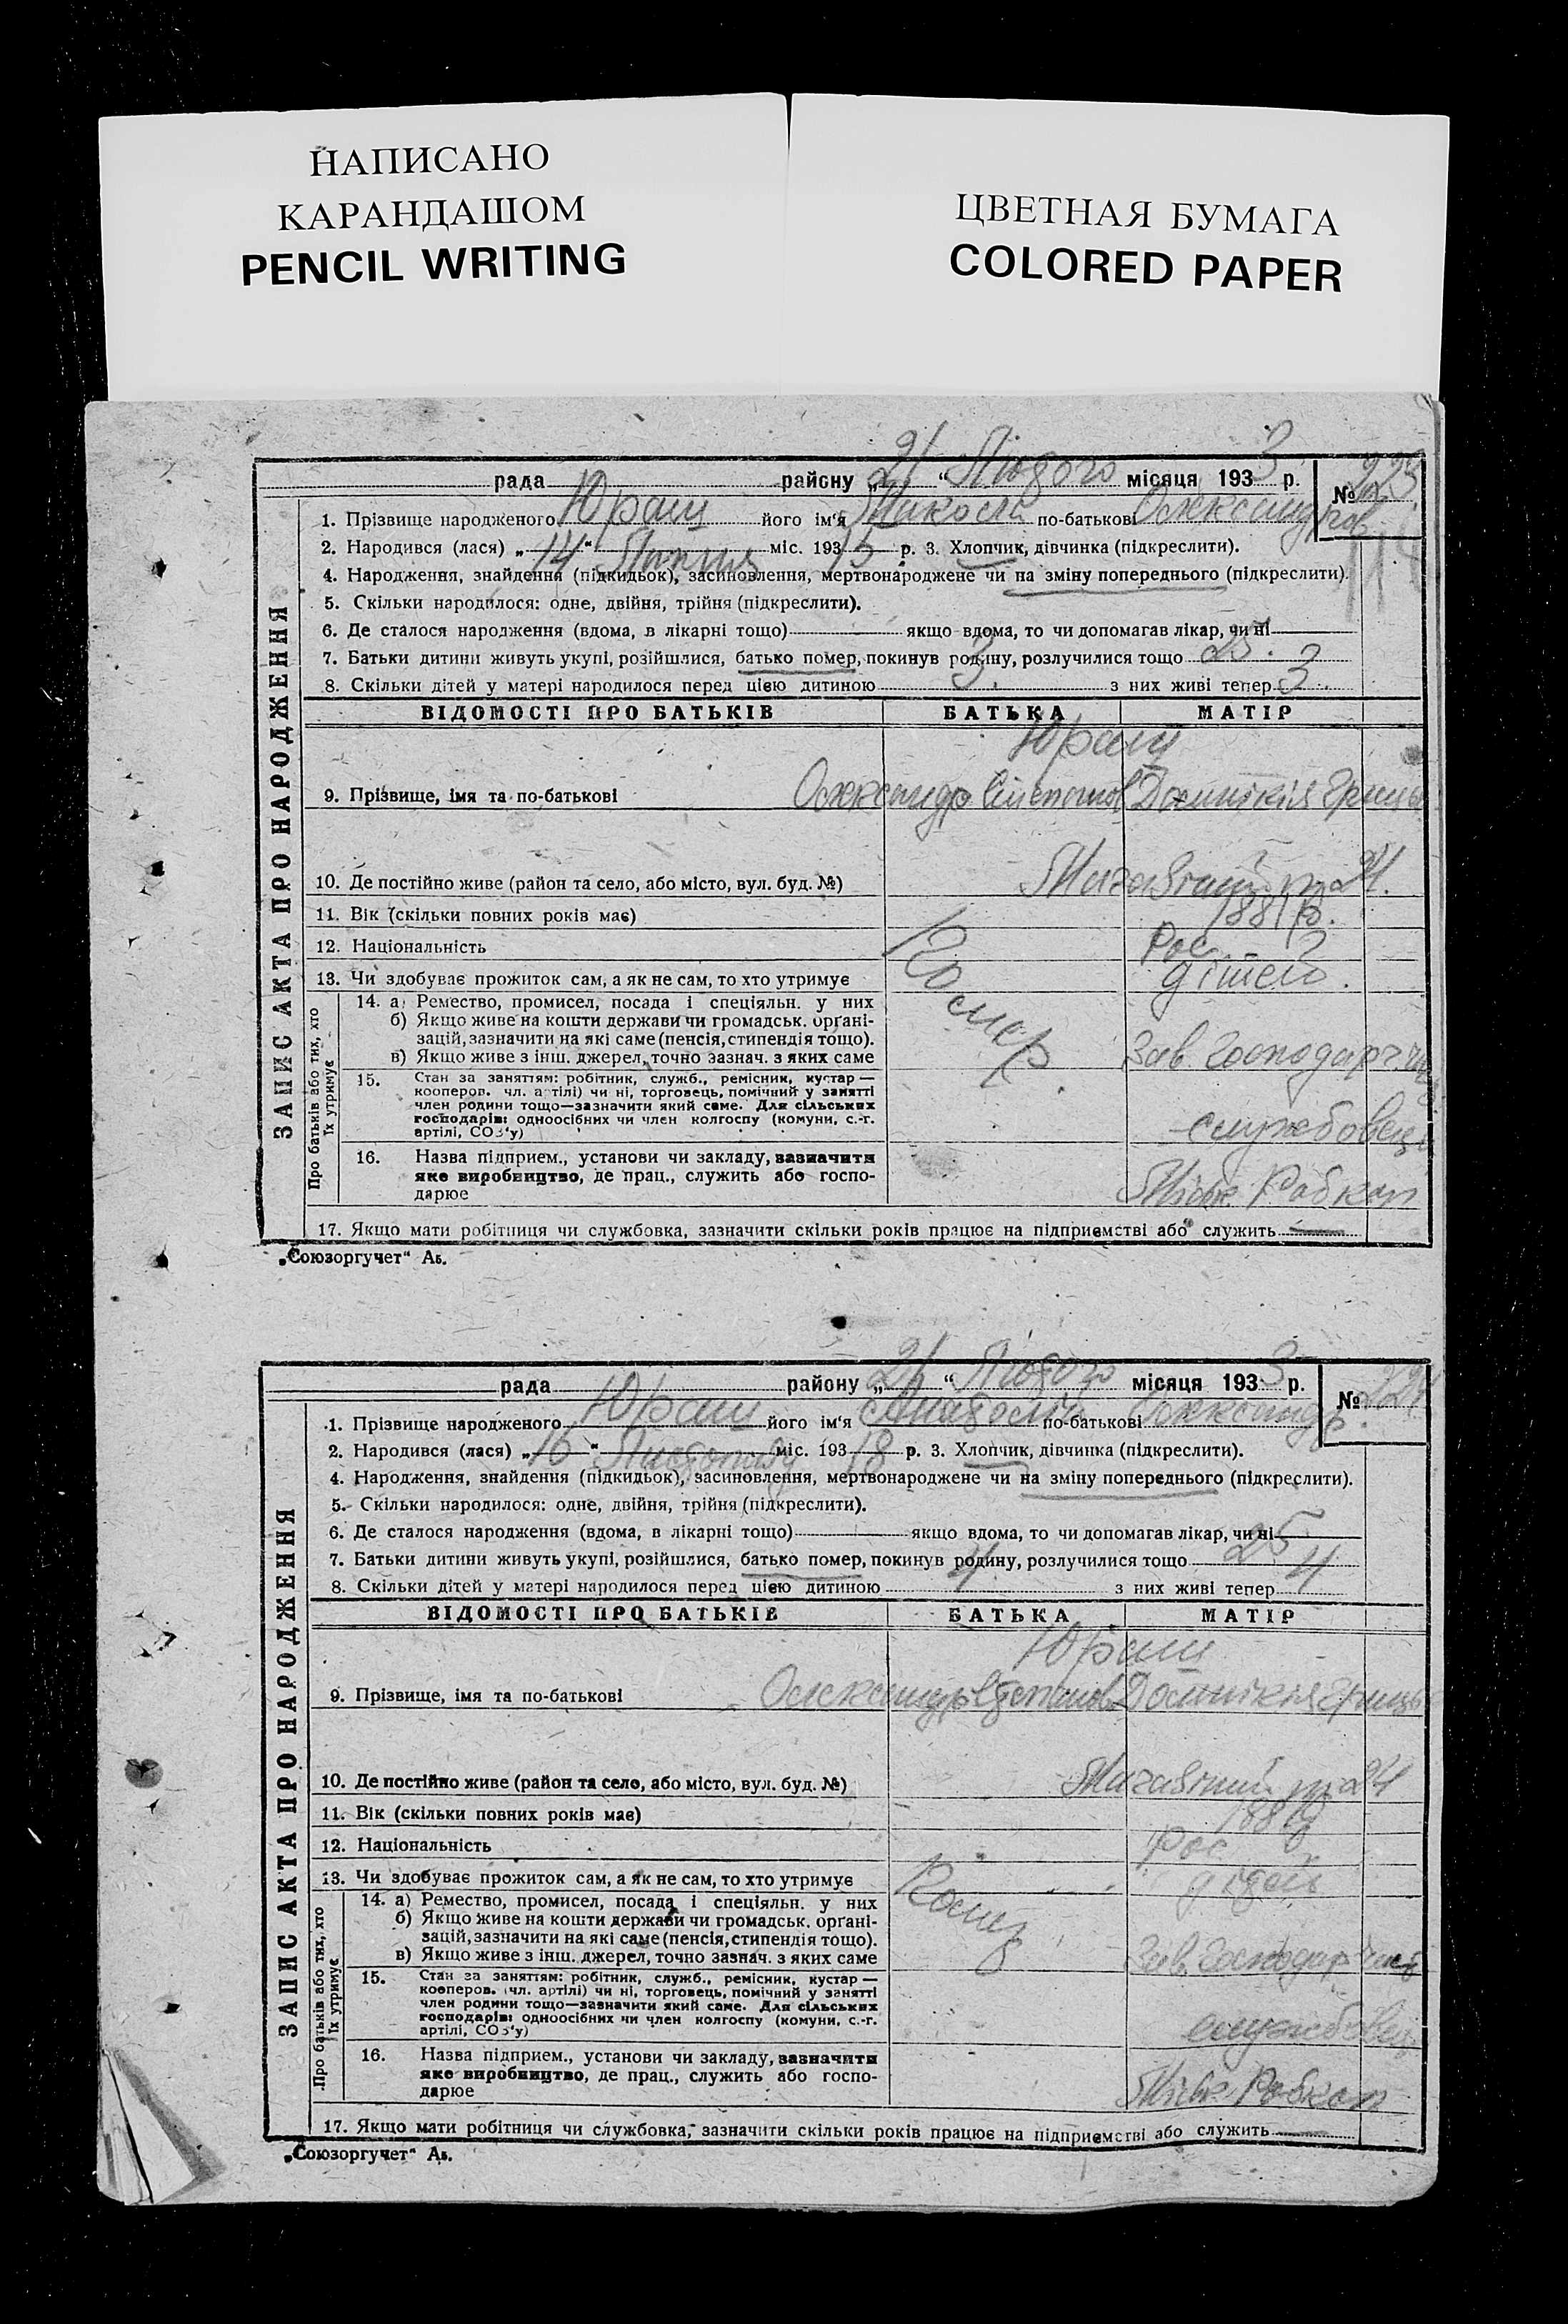 НАПИСАНО
КАРАНДАШОМ
PENCIL WRITING
ЦВЕТНАЯ БУМАГА
COLORED PAPER
ЗАПИС АКТА ПРО НАРОДЖЕННЯ
рада району „21“ Лютого місяця 193 3 р. № 223
1. Прізвище народженого Юраш його ім'я Микола по-батькові Олександров
2. Народився (лася) „14“ Липня міс. 193 15 р. 3. Хлопчик, дівчинка (підкреслити).
4. Народження, знайдення (підкидьок), засиновлення, мертвонароджене чи на зміну попереднього (підкреслити).
5. Скільки народилося: одне, двійня, трійня (підкреслити).
6. Де сталося народження (вдома, в лікарні тощо) якщо вдома, то чи допомагав лікар, чи ні
7. Батьки дитини живуть укупі, розійшлися, батько помер, покинув родину, розлучилися тощо 25.
8. Скільки дітей у матері народилося перед цією дитиною 3. з них живі тепер 3.
ВІДОМОСТІ ПРО БАТЬКІВ БАТЬКА МАТІР
Юраш
9. Прізвище, імя та по-батькові Олександр Степанов Домнікія Гриць
10. Де постійно живе (район та село, або місто, вул. буд. №) 24.
11. Вік (скільки повних років має) 1881 р.
12. Національність Рос.
13. Чи здобуває прожиток сам, а як не сам, то хто утримує дітей.
Про батьків або тих, хто їх утримує
14. а) Ремество, промисел, посада і спеціяльн. у них
б) Якщо живе на кошти держави чи громадськ. орґані-
зацій, зазначити на які саме (пенсія, стипендія тощо).
в) Якщо живе з інш. джерел, точно зазнач. з яких саме
Помер.
Зав. господарч.
15. Стан за заняттям: робітник, служб., ремісник, кустар —
кооперов. чл. артілі) чи ні, торговець, помічний у занятті
член родини тощо—зазначити який саме. Для сільських
господарів: одноосібних чи член колгоспу (комуни, с.-г.
артілі, СОЗ'у)
службовець
16. Назва підприєм., установи чи закладу, зазначити
яке виробництво, де прац., служить або госпо-
дарює
Міськ Робкоп
17. Якщо мати робітниця чи службовка, зазначити скільки років працює на підприємстві або служить
„Союзоргучет“ Аь.
ЗАПИС АКТА ПРО НАРОДЖЕННЯ
рада району „21“ Лютого місяця 193 3 р. № 224
1. Прізвище народженого Юраш його ім'я Анатолій по-батькові Олександр.
2. Народився (лася) „16“ Листопаду міс. 193 18 р. 3. Хлопчик, дівчинка (підкреслити).
4. Народження, знайдення (підкидьок), засиновлення, мертвонароджене чи на зміну попереднього (підкреслити).
5. Скільки народилося: одне, двійня, трійня (підкреслити).
6. Де сталося народження (вдома, в лікарні тощо) якщо вдома, то чи допомагав лікар, чи ні
7. Батьки дитини живуть укупі, розійшлися, батько помер, покинув родину, розлучилися тощо 25
8. Скільки дітей у матері народилося перед цією дитиною 4. з них живі тепер 4
ВІДОМОСТІ ПРО БАТЬКІВ БАТЬКА МАТІР
Юраш
9. Прізвище, імя та по-батькові Олександр Степанов Домнікія Гриць
10. Де постійно живе (район та село, або місто, вул. буд. №) 24
11. Вік (скільки повних років має) 1881 р
12. Національність Рос
13. Чи здобуває прожиток сам, а як не сам, то хто утримує дітей
Про батьків або тих, хто їх утримує
14. а) Ремество, промисел, посада і спеціяльн. у них
б) Якщо живе на кошти держави чи громадськ. орґані-
зацій, зазначити на які саме (пенсія, стипендія тощо).
в) Якщо живе з інш. джерел, точно зазнач. з яких саме
Помер
Зав. господар
15. Стан за заняттям: робітник, служб., ремісник, кустар —
кооперов. чл. артілі) чи ні, торговець, помічний у занятті
член родини тощо—зазначити який саме. Для сільських
господарів: одноосібних чи член колгоспу (комуни, с.-г.
артілі, СОЗ'у)
службовець
16. Назва підприєм., установи чи закладу, зазначити
яке виробництво, де прац., служить або госпо-
дарює
Міськ Робкоп
17. Якщо мати робітниця чи службовка, зазначити скільки років працює на підприємстві або служить
„Союзоргучет“ Аь.